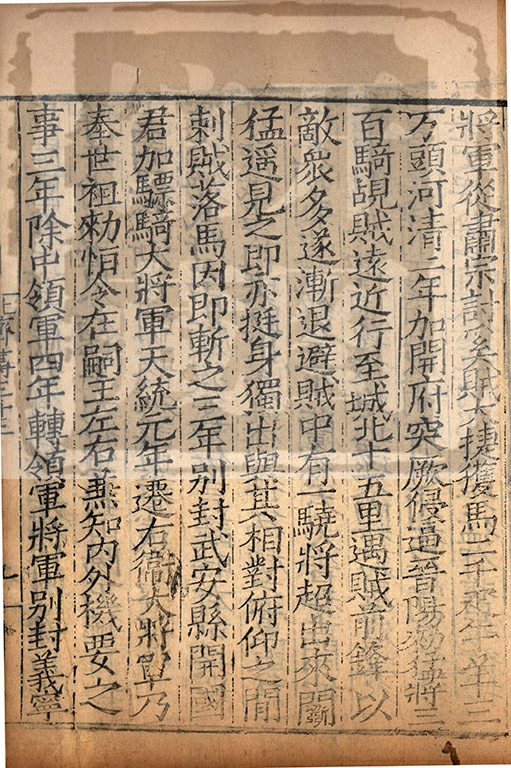 將軍從肅宗討奚賊大捷獲馬二千疋牛羊三
万頭河清二年加開府突厥侵逼晉陽勑猛將三
百騎覘賊遠近行至城北十五里遇賊前鋒以
敵衆多遂漸退避賊中有一驍將超出來鬭
猛遥見之即亦挺身獨出與其相對俯仰之間
刺賊落馬因即斬之三年別封武安縣開國
君加驃騎大將軍天統元年遷右衞大將軍乃
奉世祖勑恒令在嗣王左右兼知內外機要之
事三年除中領軍四年轉領軍將軍別封義寧